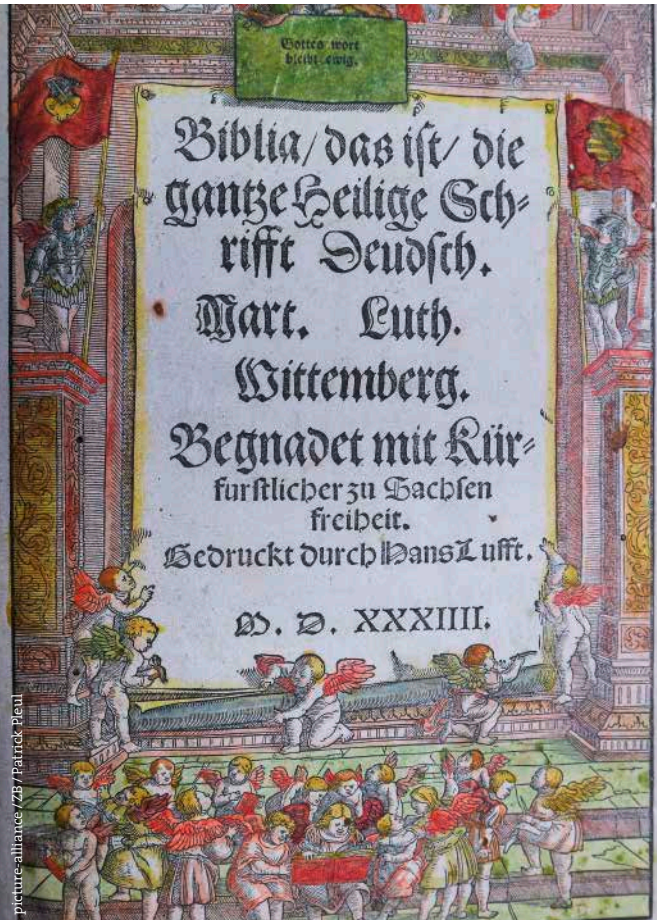 Gottes wort
bleibt ewig.
Biblia/ das ist/ die
gantze Heilige Sch⸗
rifft Deudsch.
Mart. Luth.
Wittemberg.
Begnadet mit Kür⸗
furstlicher zu Sachsen
freiheit.
Gedruckt durch Hans Lufft.
M. D. XXXIIII.
picture-alliance / ZB / Patrick Pleul